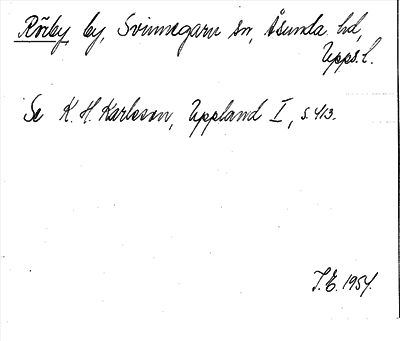 Rörby by, Svinnegarn sn, Åsunda hd,
Upps. l.
Se K. H. Karlsson, Uppland I, s. 413.
T. E. 1954.